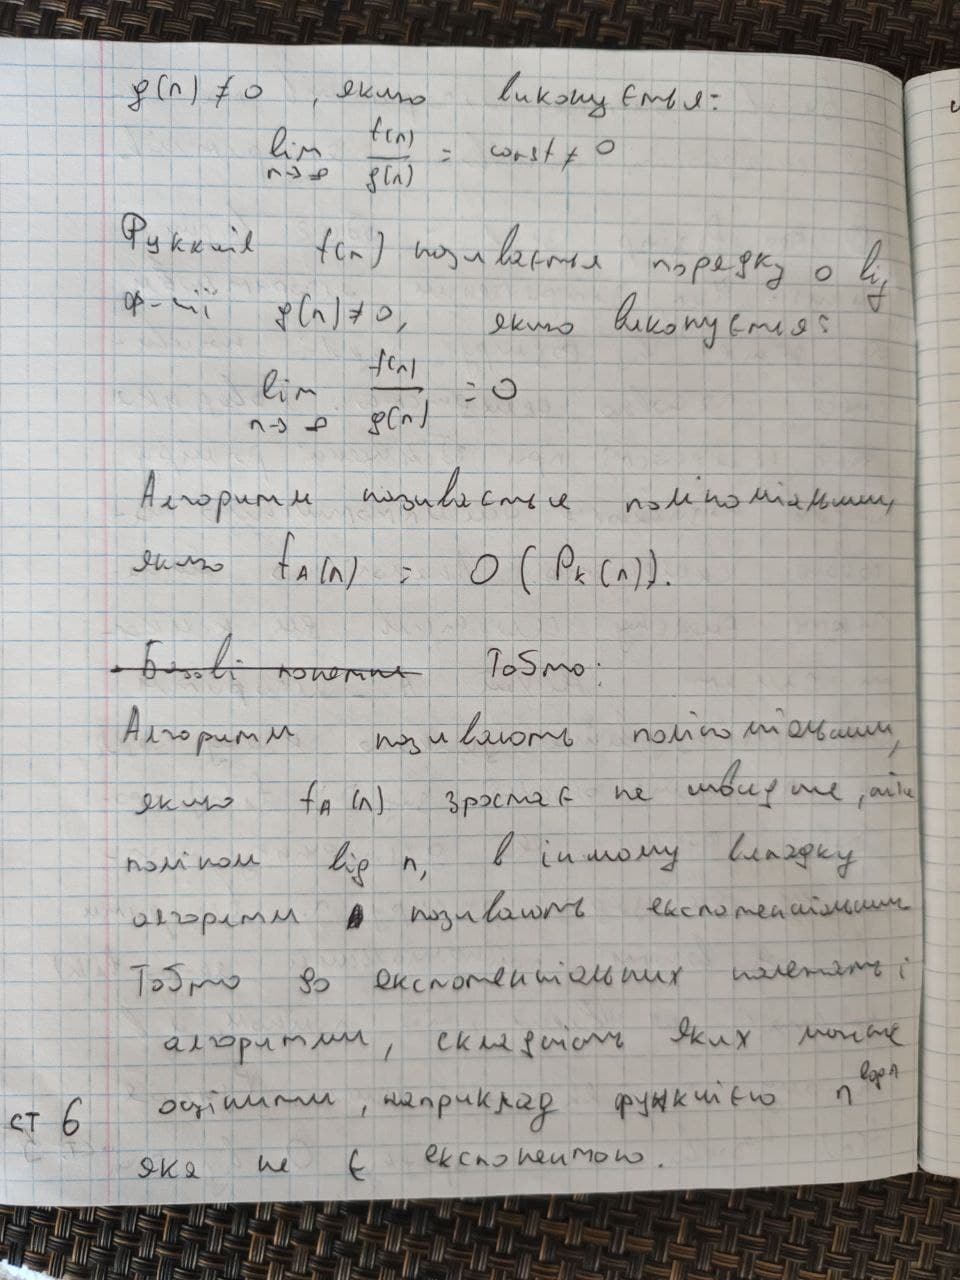 g(n) ≠ 0, якщо виконується:
lim n→∞ f(n)/g(n) = const ≠ 0
Функція f(n) називається порядку o від
ф-ції g(n) ≠ 0, якщо виконується:
lim n→∞ f(n)/g(n) = 0
Алгоритм називається поліноміальним,
якщо f_A(n) = O(P_k(n)).
Базові поняття Тобто:
Алгоритм називають поліноміальним,
якщо f_A(n) зростає не швидше, ніж
поліном від n, в іншому випадку
алгоритм називають експоненціальним
Тобто до експоненціальних належать і
алгоритми, складність яких можна
оцінити, наприклад функцією n^log n
ст 6
яка не є експонентою.